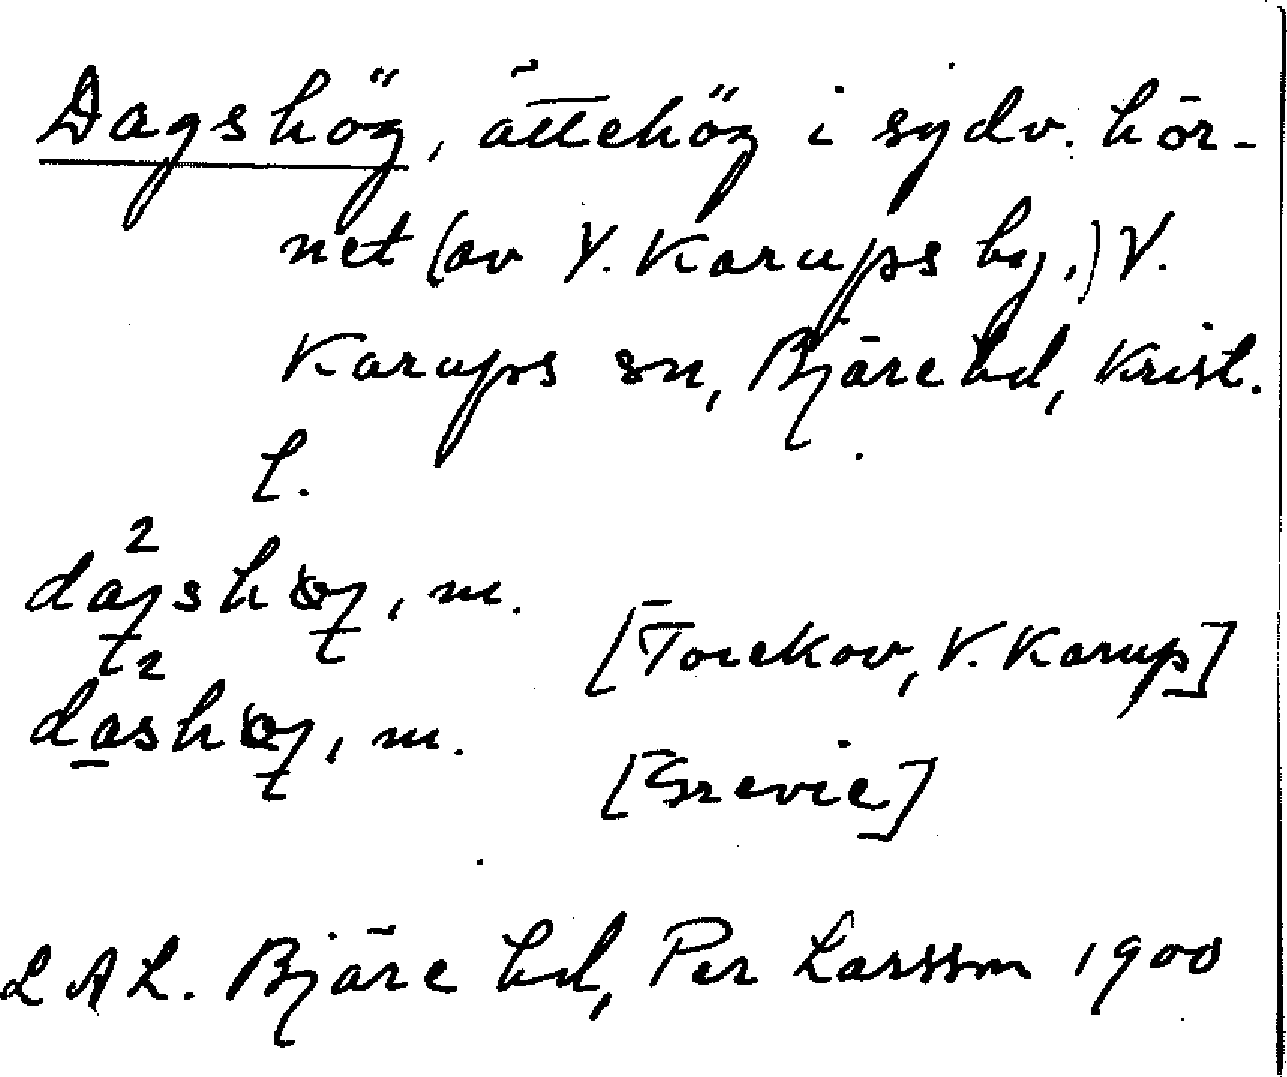 Dagshög, ättehög i sydv. hör-
net (av V. Karups by.) V.
Karups sn, Bjäre hd, Krist.
l.
da²gshøg, m.
[Torekov, V. Karup]
da²shøg, m.
[Grevie]
LAL. Bjäre hd, Per Larsson 1900